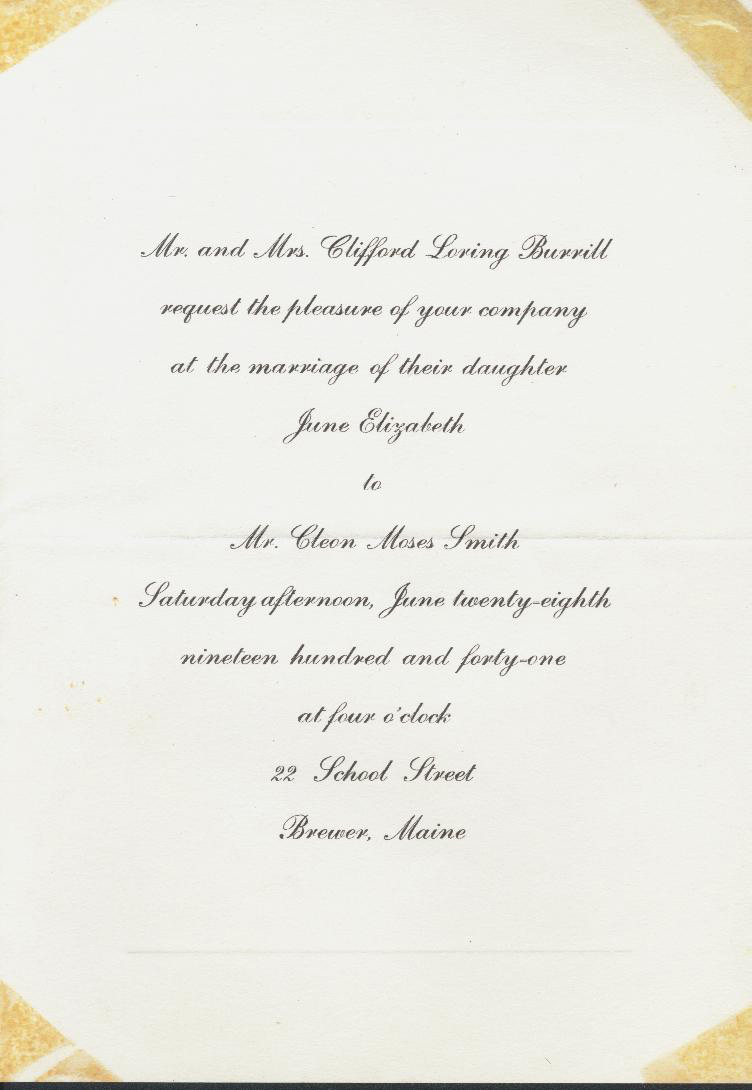 Mr. and Mrs. Clifford Loring Burrill
request the pleasure of your company
at the marriage of their daughter
June Elizabeth
to
Mr. Cleon Moses Smith
Saturday afternoon, June twenty-eighth
nineteen hundred and forty-one
at four o'clock
22 School Street
Brewer, Maine